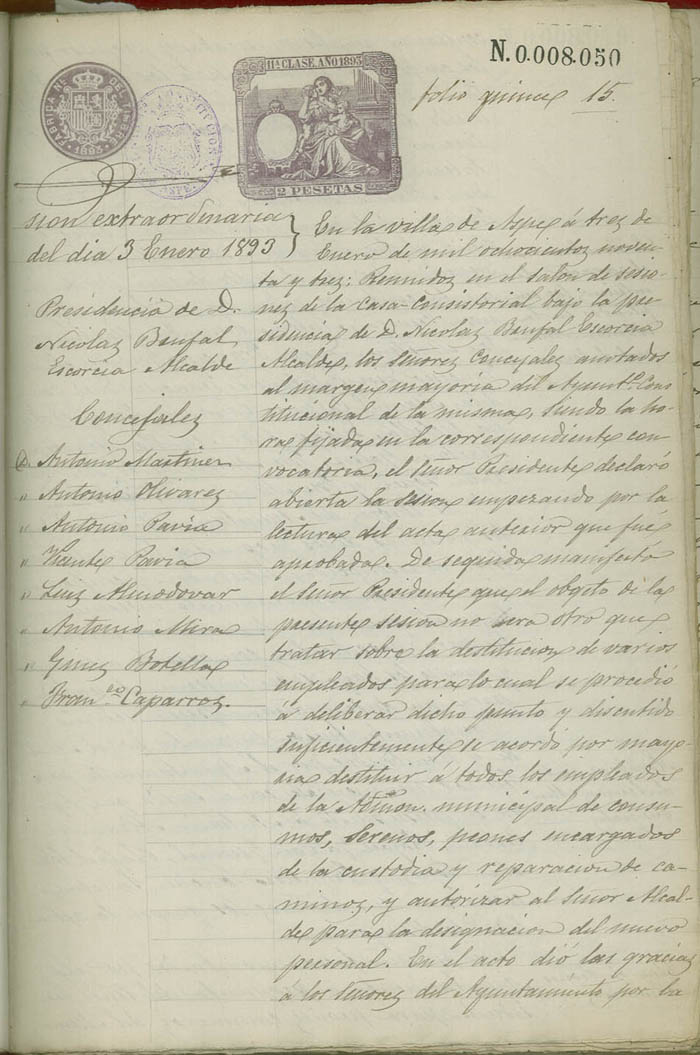 N.0.008.050
11ª CLASE. AÑO 1893
FABRICA NL. DEL TIMBRE
1893
2 PESETAS
folio quince 15.
sion extraordinaria
del dia 3 Enero 1893
Presidencia de D.
Nicolaz Bonfal
Escorcia Alcalde
Concejalez
D. Antonio Martinez
" Antonio Olivarez
" Antonio Pavia
" Vicente Pavia
" Luiz Almodovar
" Antonio Mira
" Ginez Botella
" Franco Caparroz.
En la villa de Aspe á trez de
Enero de mil ochocientoz noven-
ta y trez: Reunidoz en el salon de sesio-
nez de la Casa-Consistorial bajo la pre-
sidencia de D. Nicolaz Bonfal Escorcia
Alcalde, los Señorez Concejalez anotados
al margen mayoria del Ayuntº. Cons
titucional de la misma, siendo la ho-
ra fijada en la correspondiente con-
vocatoria, el Señor Presidente declaró
abierta la sesion emperando por la
lectura del acta anterior que fué
aprobada. De seguida manifestó
el Señor Presidente que el obgeto de la
presente sesión no era otro que
tratar sobre la destitucion de varios
empleados para lo cual se procedió
á deliberar dicho punto y discutido
suficientemente se acordó por mayo-
ria destituir á todos los empleados
de la Admon. municipal de consu-
mos, Serenos, peones encargados
de la custodia y reparacion de ca-
minoz, y autorizar al Señor Alcal-
de para la designacion del nuevo
personal. En el acto dió las graciaz
á los Señorez del Ayuntamiento por la